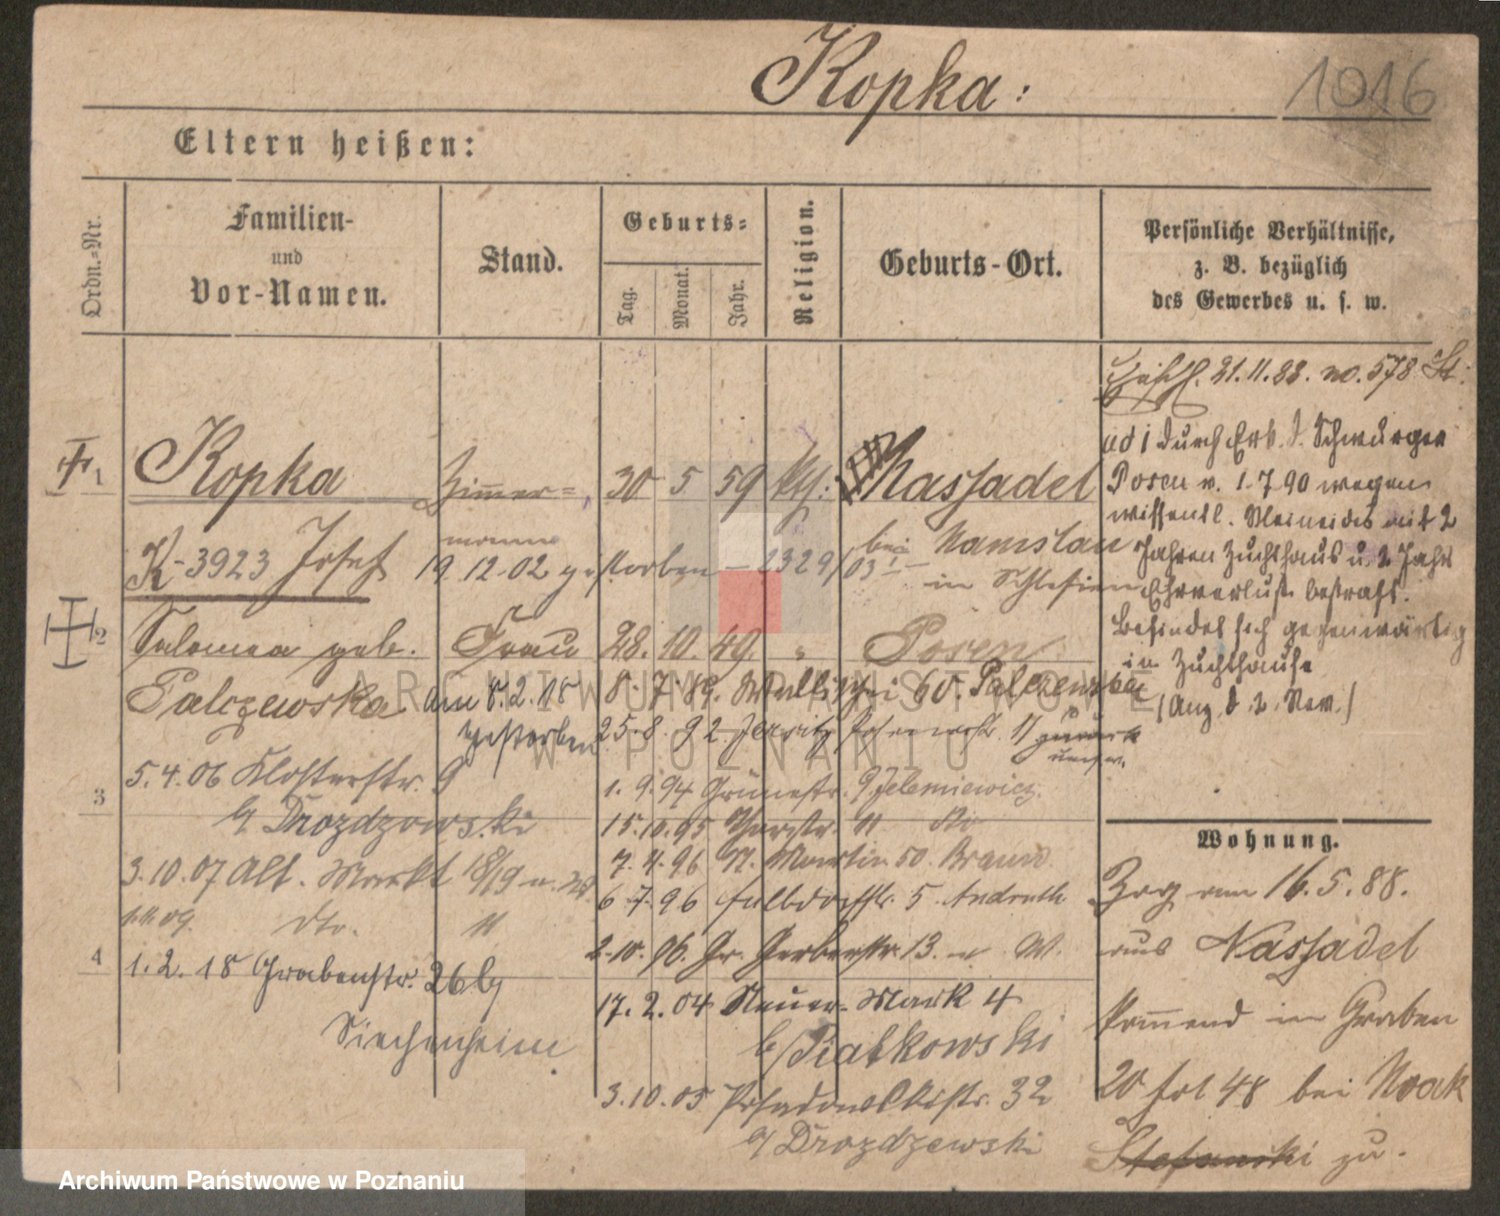 Kopka:
1016
Eltern heißen:
Ordn.-Nr.
Familien-
und
Vor-Namen.
Stand.
Geburts-
Tag.
Monat.
Jahr.
Religion.
Geburts-Ort.
Persönliche Verhältnisse,
z. B. bezüglich
des Gewerbes u. s. w.
21.11.88. no. 578 St.
1 Kopka Zimmer= 30 5 59 Kth: Nassadel
mann bei Namslau
K-3923 Josef 19.12.02 gestorben - 2329/03 in Schlesien
ad 1 durch Erk. d. Schwurger
Posen v. 1.7.90 wegen
wissentl. Meineides mit 2
Jahren Zuchthaus u. 2 Jahr
Ehrverlust bestraft.
Befindet sich gegenwärtig
im Zuchthause
(Anz. d. 2. Nov.)
2 Salomea geb. Frau 28. 10. 49. " Posen
Palczewska am 8.2.18 8. 7. 89. Wallischei 60. Palczewska
gestorben 25. 8. 92. Jersitz 17 zurück
3
5.4.06 Klosterstr. 9 1. 9. 94 Grünestr. 9 Jeleniewicz.
b/ Drozdzewski 15.10.95 11 dto
3.10.07 Alt. Markt 18/19 7. 4. 96 St. Martin 50. Braun
6. 7. 96 Halbdorfstr. 5.
1.11.09. dto. 11
2.10.96. Gr. Gerberstr. 13. W.
4
1.2.18 Grabenstr. 26 b/
Siechenheim
17. 2. 04 Neuer-Markt 4
b/ Piatkowski
3.10.05 Posadowskistr. 32
b/ Drozdzewski
Wohnung.
Zog am 16.5.88.
aus Nassadel
kommend in Graben
20 fol 48 bei Noak
Stefanski zu.
ARCHIWUM PAŃSTWOWE
W POZNANIU
Archiwum Państwowe w Poznaniu